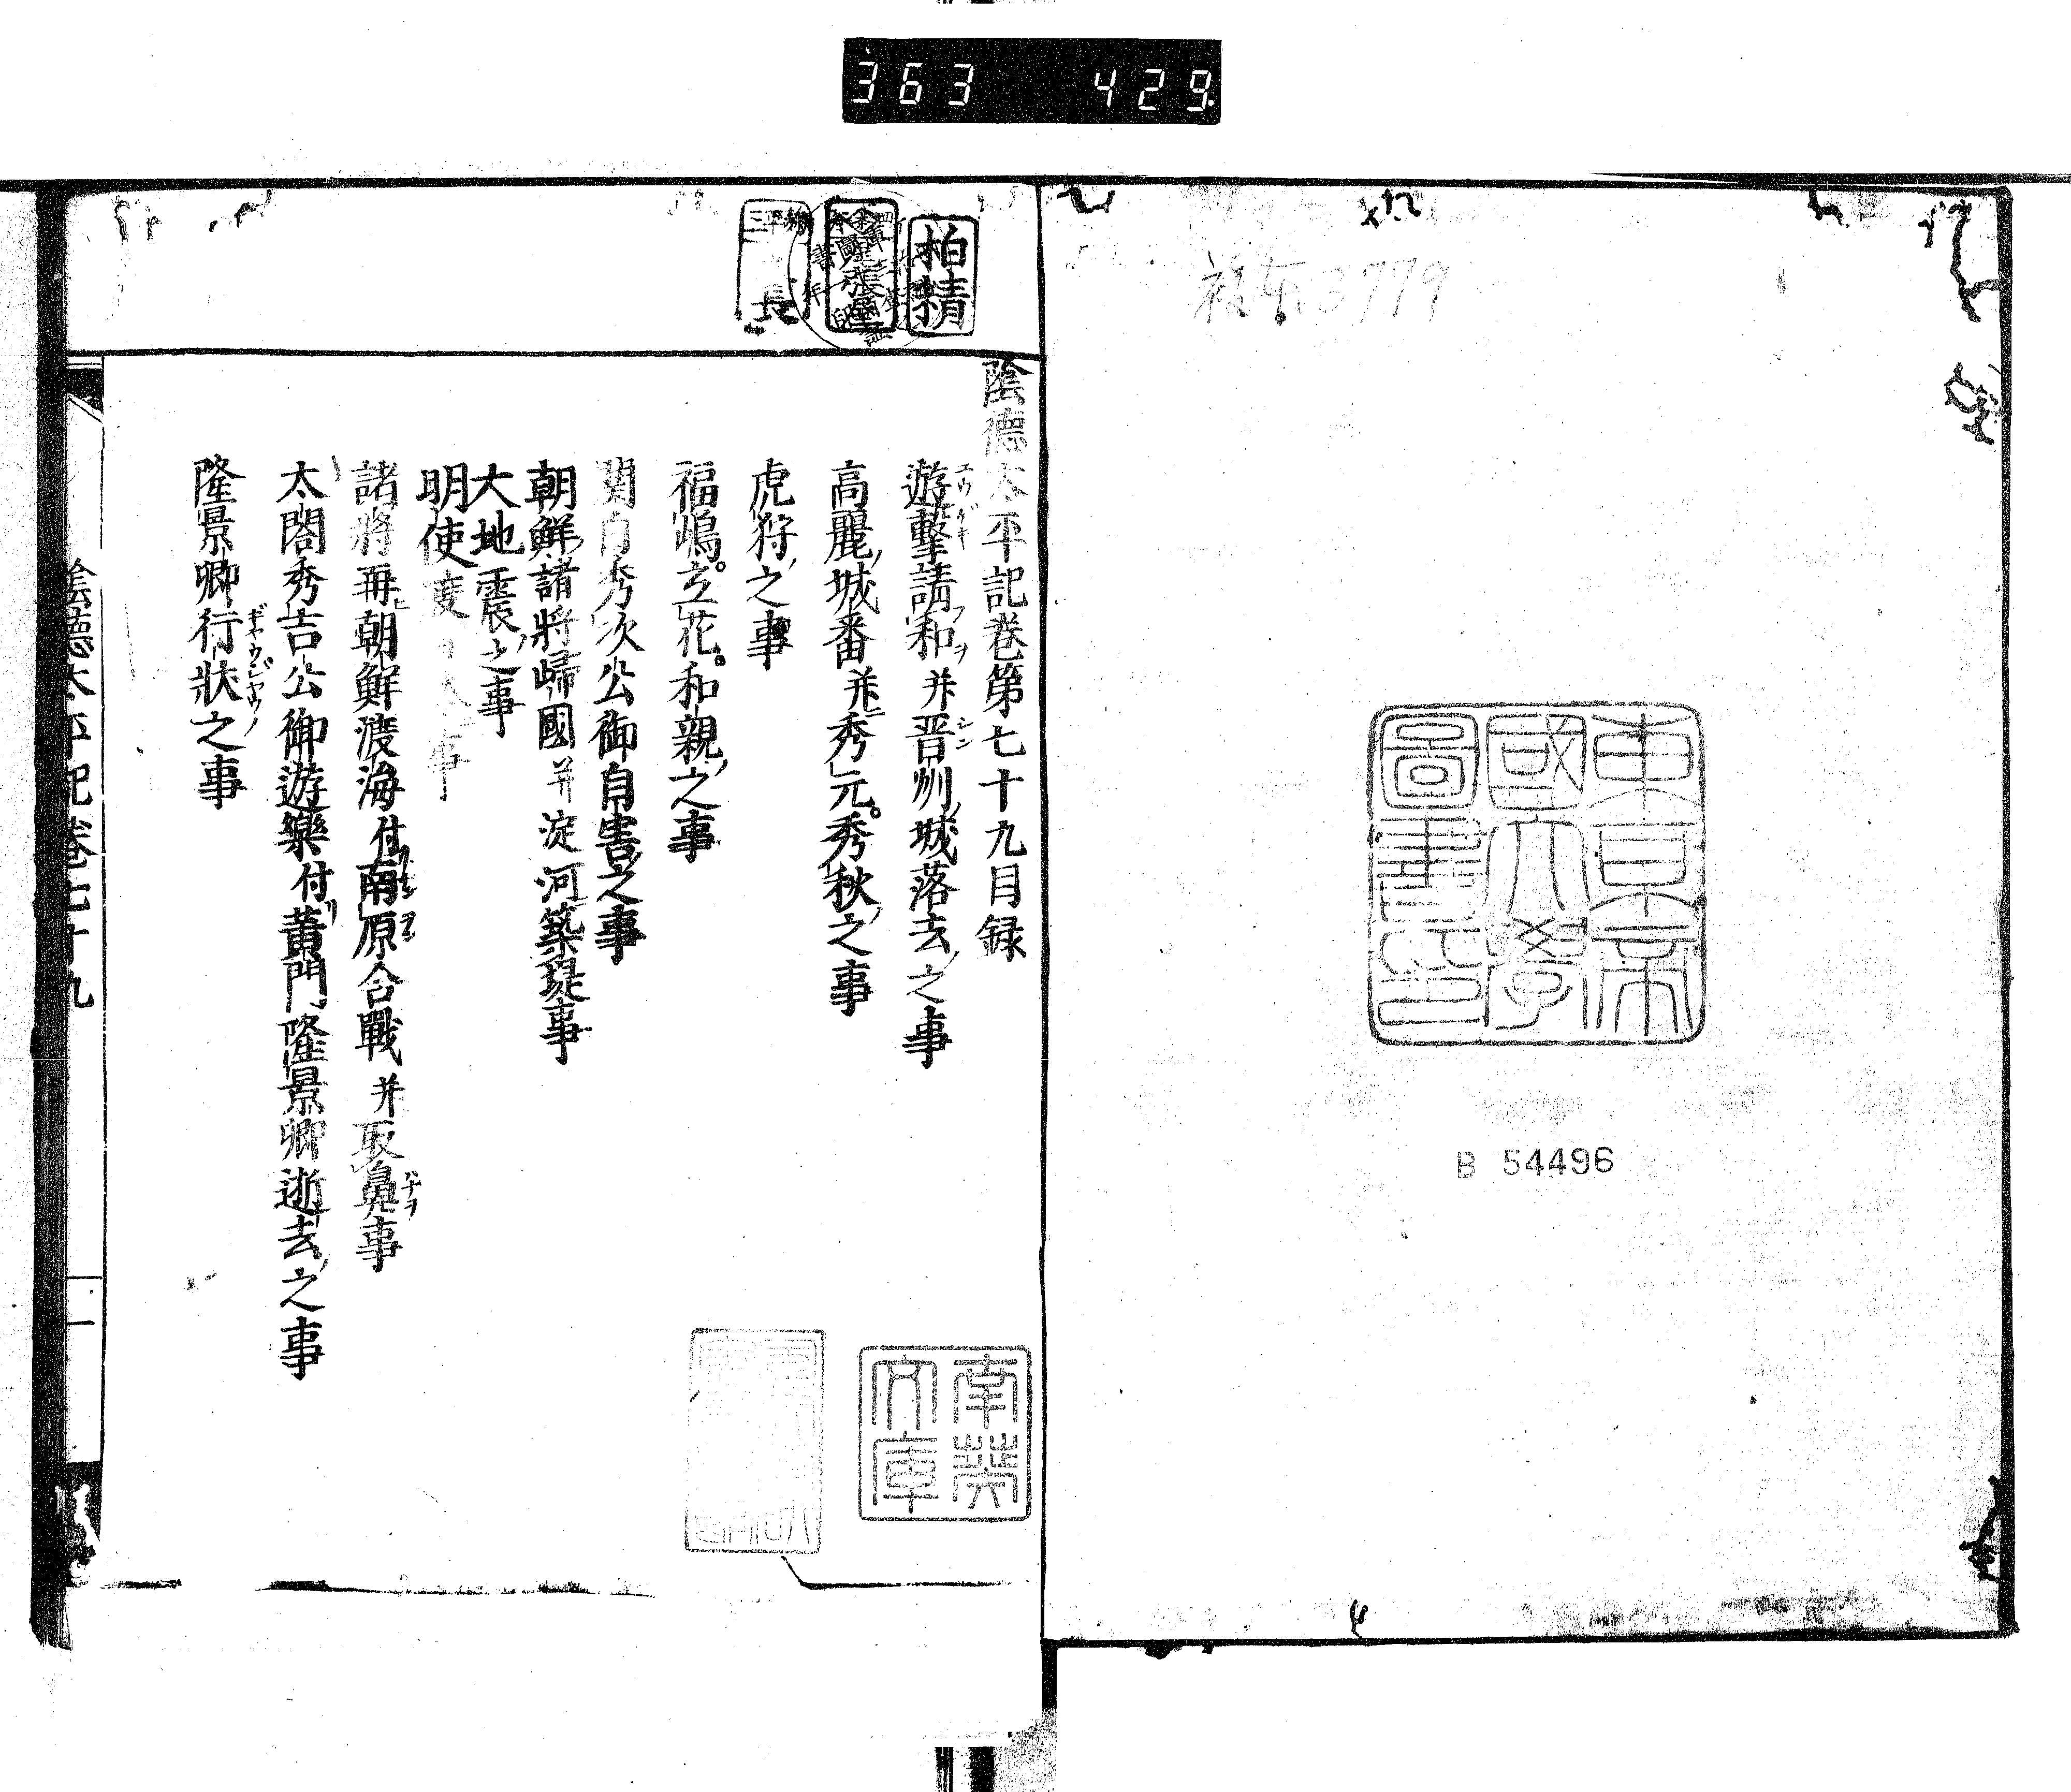 363 429
3779
東京帝
國大學
圖書印
B 54496
柏精
長
陰德太平記卷第七十九目録
遊擊請和并晋州城落去之事
高麗城番并秀元秀秋之事
虎狩之事
福嶋立花和親之事
関白秀次公御自害之事
朝鮮諸將歸國并淀河築堤事
大地震之事
明使渡 事
諸將再朝鮮渡海付南原合戰并取鼻事
太閤秀吉公御遊樂付黃門隆景卿逝去之事
隆景卿行狀之事
南葵
文庫
陰德太平記卷七十九
一